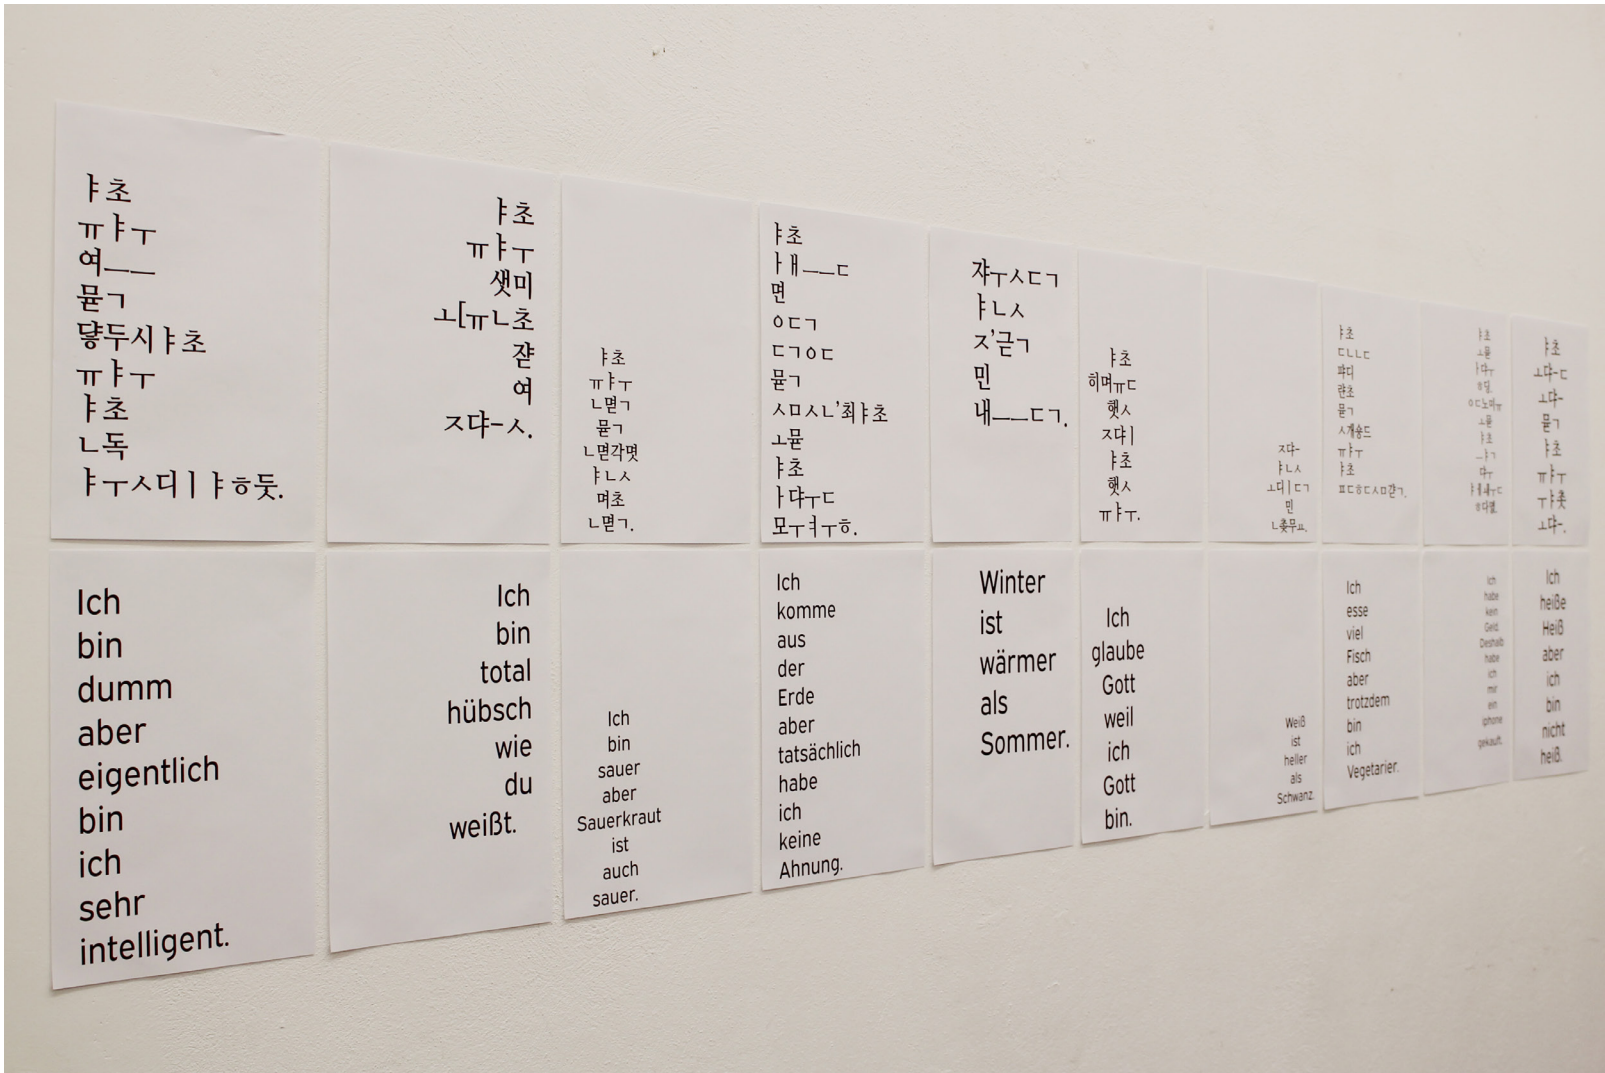 ㅑ초
ㅠㅑㅜ
여ㅡㅡ
뮫ㄱ
댷두시ㅑ초
ㅠㅑㅜ
ㅑ초
ㄴ독
ㅑㅜㅅ디ㅣㅑㅎ둣.
ㅑ초
ㅠㅑㅜ
샛미
ㅗ[ㅠㄴ초
쟏
여
ㅈ댜-ㅅ.
ㅑ초
ㅠㅑㅜ
ㄴ멷ㄱ
뮫ㄱ
ㄴ멷각몃
ㅑㄴㅅ
며초
ㄴ멷ㄱ.
ㅑ초
ㅏㅐㅡㅡㄷ
면
ㅇㄷㄱ
ㄷㄱㅇㄷ
뮫ㄱ
ㅅㅁㅅㄴ'최ㅑ초
ㅗ뮫
ㅑ초
ㅏ댜ㅜㄷ
모ㅜㅕㅜㅎ.
쟈ㅜㅅㄷㄱ
ㅑㄴㅅ
ㅈ'귿ㄱ
민
내ㅡㅡㄷㄱ.
ㅑ초
히며ㅠㄷ
햇ㅅ
ㅈ댜ㅣ
ㅑ초
햇ㅅ
ㅠㅑㅜ.
ㅈ댜-
ㅑㄴㅅ
ㅗ디ㅣㄷㄱ
민
ㄴ촞무ㅛ.
ㅑ초
ㄷㄴㄴㄷ
퍄디
랸초
뮫ㄱ
ㅅ개숑드
ㅠㅑㅜ
ㅑ초
ㅍㄷㅎㄷㅅㅁ갿ㄱ.
ㅑ초
ㅗ뮫
ㅏ댜ㅜ
ㅎ딩.
ㅇㄷ노미ㅠ
ㅗ뮫
ㅑ초
ㅡㅑㄱ
댜ㅜ
ㅑㅔㅙㅜㄷ
ㅑ초
ㅗ댜-ㄷ
ㅗ댜-
뮫ㄱ
ㅑ초
ㅠㅑㅜ
ㅜㅑ촛
ㅗ댜-.
Ich
bin
dumm
aber
eigentlich
bin
ich
sehr
intelligent.
Ich
bin
total
hübsch
wie
du
weißt.
Ich
bin
sauer
aber
Sauerkraut
ist
auch
sauer.
Ich
komme
aus
der
Erde
aber
tatsächlich
habe
ich
keine
Ahnung.
Winter
ist
wärmer
als
Sommer.
Ich
glaube
Gott
weil
ich
Gott
bin.
Weiß
ist
heller
als
Schwanz.
Ich
esse
viel
Fisch
aber
trotzdem
bin
ich
Vegetarier.
Ich
habe
kein
Geld.
Deshalb
habe
ich
mir
ein
iphone
gekauft.
Ich
heiße
Heiß
aber
ich
bin
nicht
heiß.